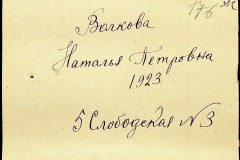 176 ж
Волкова
Наталья Петровна
1923
5 Слободская № 3